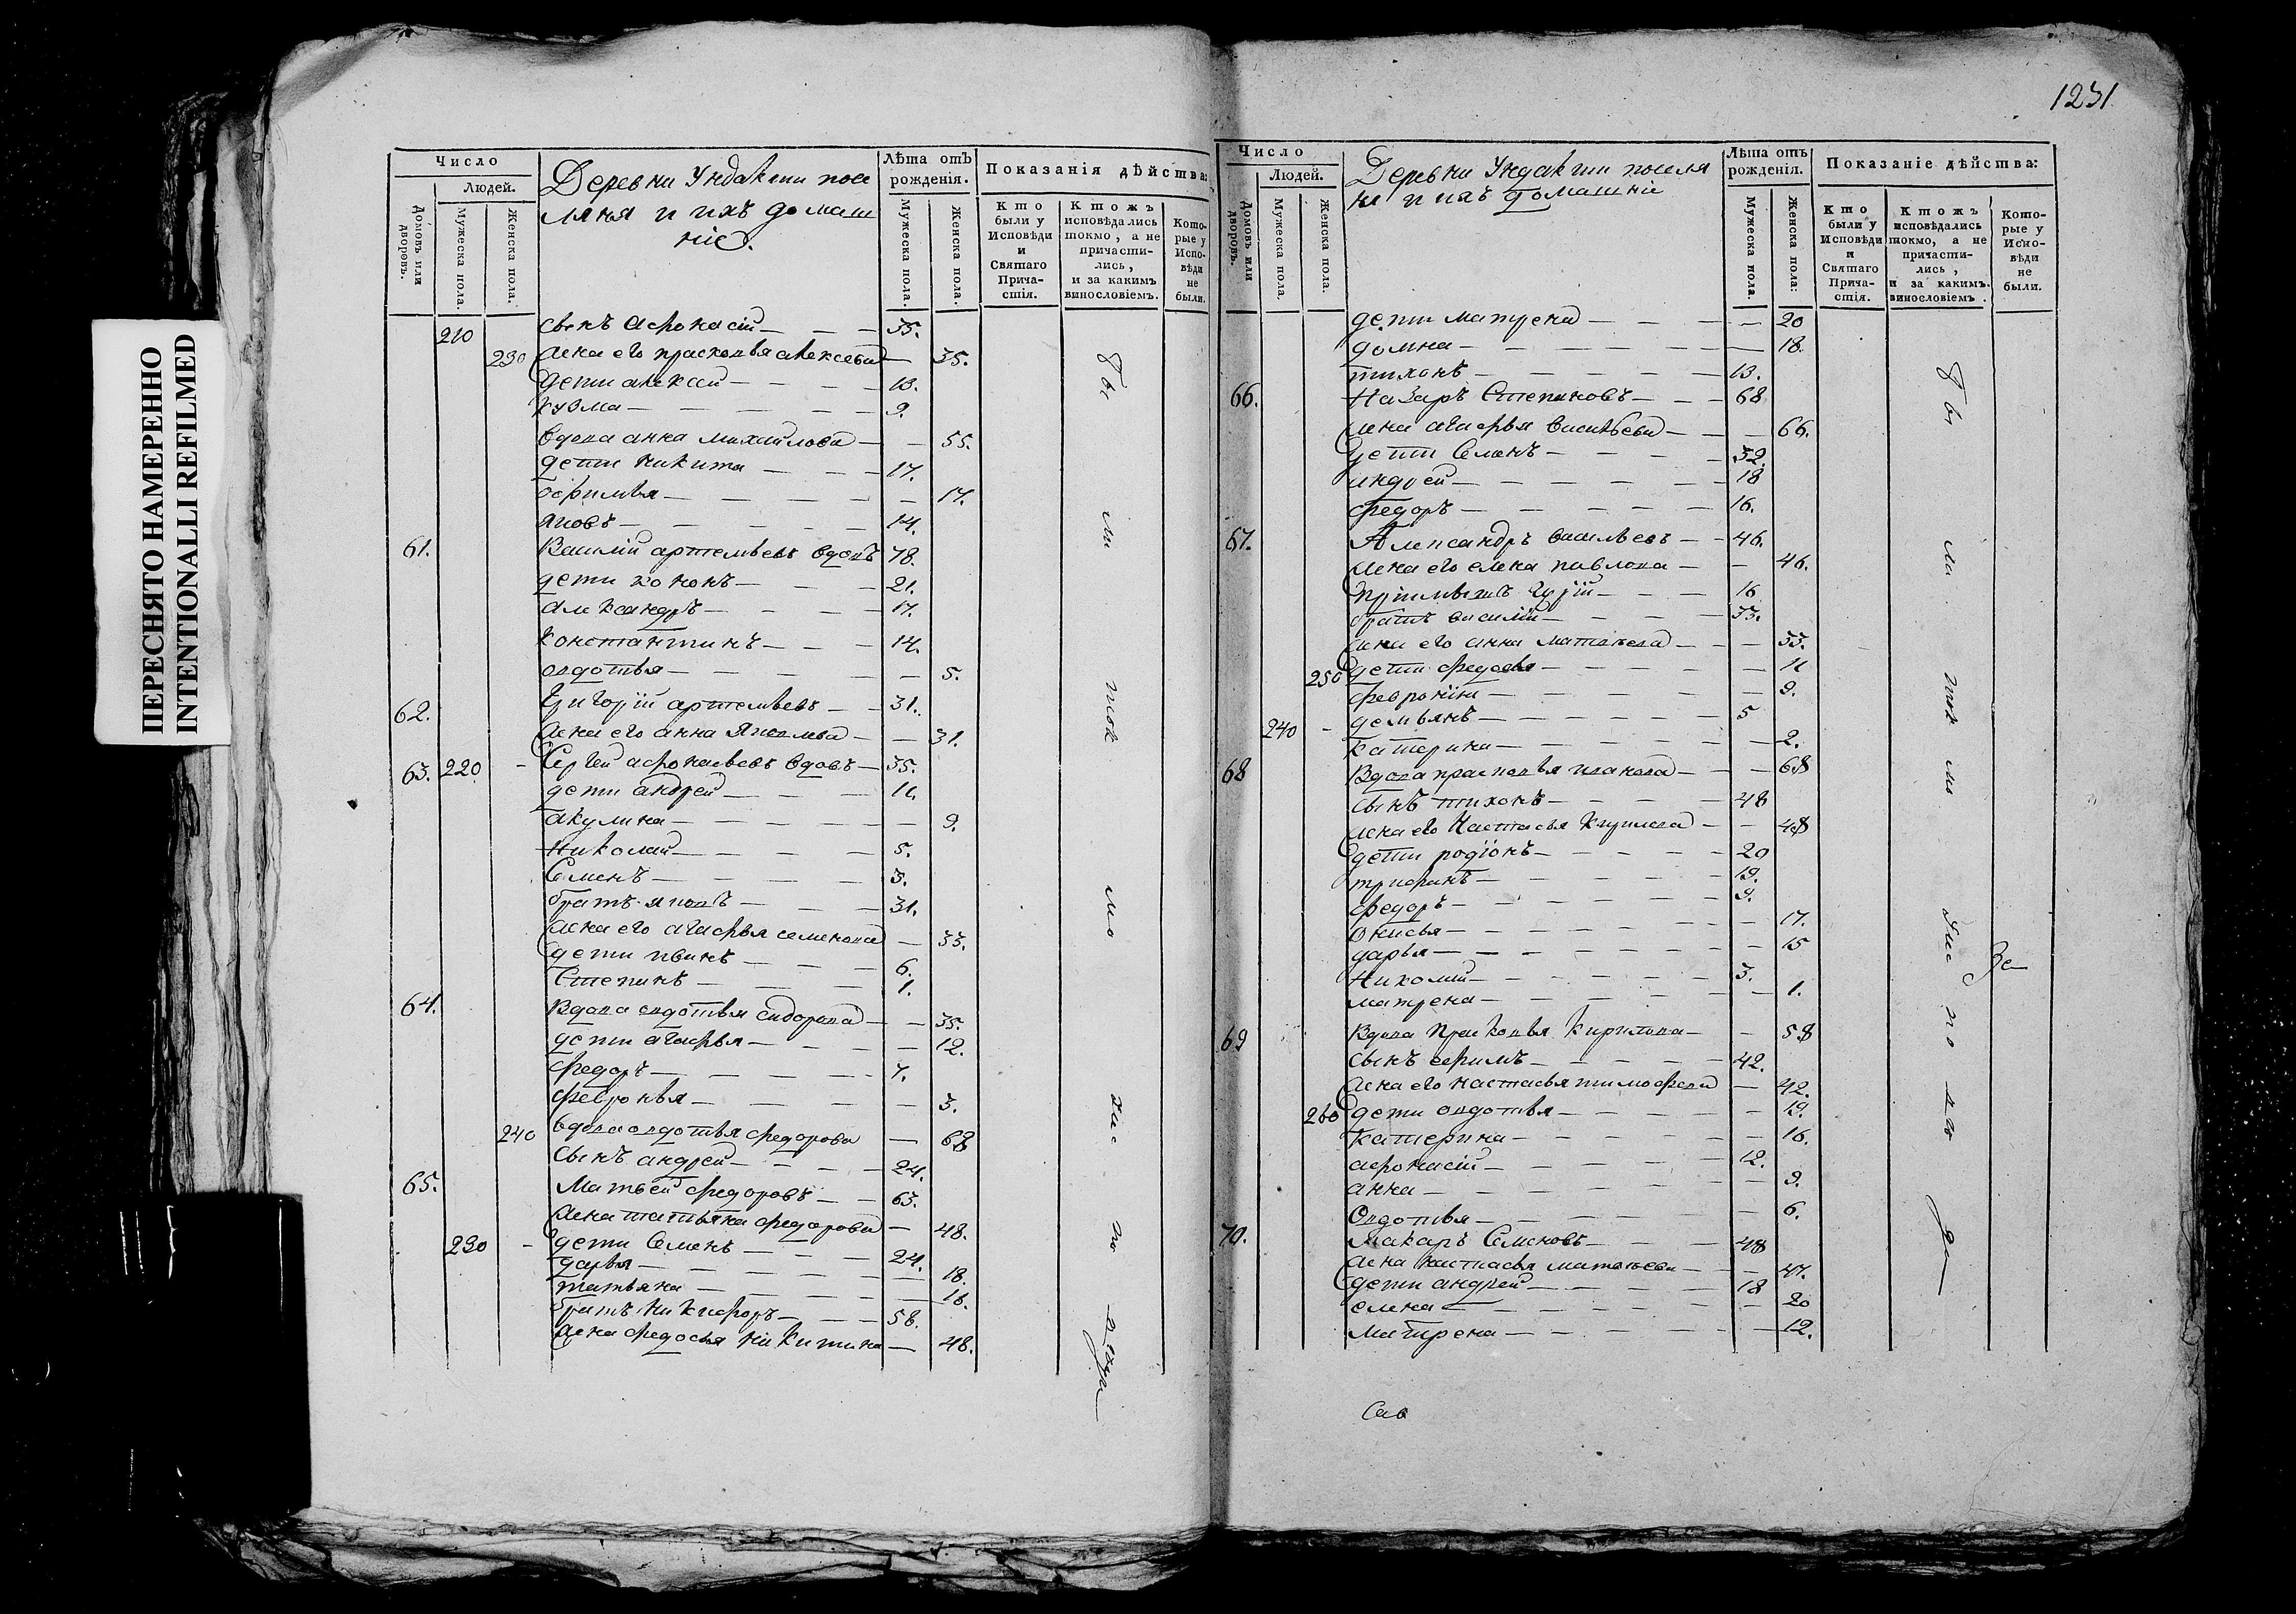 ПЕРЕСНЯТО НАМЕРЕННО
INTENTIONALLI REFILMED
Число
Людей.
Домовъ или дворовъ.
Мужеска пола.
Женска пола.
Деревни Ундакти посе
ляня и ихъ домаш
ніе.
Лѣта отъ рожденія.
Мужеска пола.
Женска пола.
Показанія дѣйства:
Кто были у Исповѣди и Святаго Прича-стія.
Ктожъ исповѣдались токмо, а не причасти-лись, и за какимъ винословіемъ.
Кото-рые у Испо-вѣди не были.
210 сынъ Афонасіи — 35.
230 жена его прасковья алексева — 35.
дети алексеи — 13.
кузма — 9.
вдова анна михаилова — 55.
дети никита — 17.
офимья — 17.
яковъ — 14.
61. Василіи артемьевъ вдовъ 78.
дети кононъ — 21.
александръ — 17.
константинъ — 14.
овдотья — 5.
62. Григоріи артемьевъ — 31.
жена его анна — 31.
63. 220 - Сергеи афонасьевъ вдовъ — 35.
дети андреи — 11.
акулина — 9.
Николаи — 5.
Семенъ — 3.
братъ яковъ — 31.
жена его агафья семенова — 33.
дети иванъ — 6.
Степанъ — 1.
64. Вдова овдотья сидорова — 35.
дети агафья — 12.
федоръ — 7.
февронья — 3.
240 вдова овдотья федорова — 68
сынъ андреи — 24.
65. Матвеи федоровъ — 63.
жена татьяна федорова — 48.
230 - дети Семенъ — 24.
дарья — 18.
татьяна — 16.
братъ Никифоръ — 56.
жена федосья никитина — 48.
1231
Число
Людей.
Домовъ или дворовъ.
Мужеска пола.
Женска пола.
Деревни Ундакти поселя
не и ихъ домашніе
Лѣта отъ рожденія.
Мужеска пола.
Женска пола:
Показаніе дѣйства:
Кто были у Исповѣди и Святаго Прича-стія.
Ктожъ исповѣдались токмо, а не причасти-лись, и за какимъ винословіемъ.
Кото-рые у Испо-вѣди не были.
дети матрена — 20
домна — 18.
тихонъ — 13.
66. Назаръ Степановъ — 68
жена агафья васильева — 66.
дети Семенъ — 32.
андреи — 18
федоръ — 16.
67. Александръ васильевъ — 46.
жена его елена павлова — 46.
16
братъ василіи — 33.
жена его анна матвеева — 33.
250 дети федосья — 11
февронія — 9.
240 - демьянъ — 5
катерина — 2.
68 Вдова прасковья иванова — 68
сынъ тихонъ — 48
жена его Настасья кирилова — 48
дети родіонъ — 20
трифанъ — 19.
федоръ — 9.
Оксья — 17.
дарья — 15
Николаи — 3.
матрена — 1.
69 Вдова Прасковья кирилова — 58
сынъ ефимъ — 42.
жена его настасья тимофеева — 42.
260 дети овдотья — 19.
катерина — 16.
афонасіи — 12.
анна — 9.
Овдотья — 6.
70. Макаръ Семеновъ — 48
жена настасья матвеева — 47.
дети андреи — 18
елена — 20
матрена — 12.